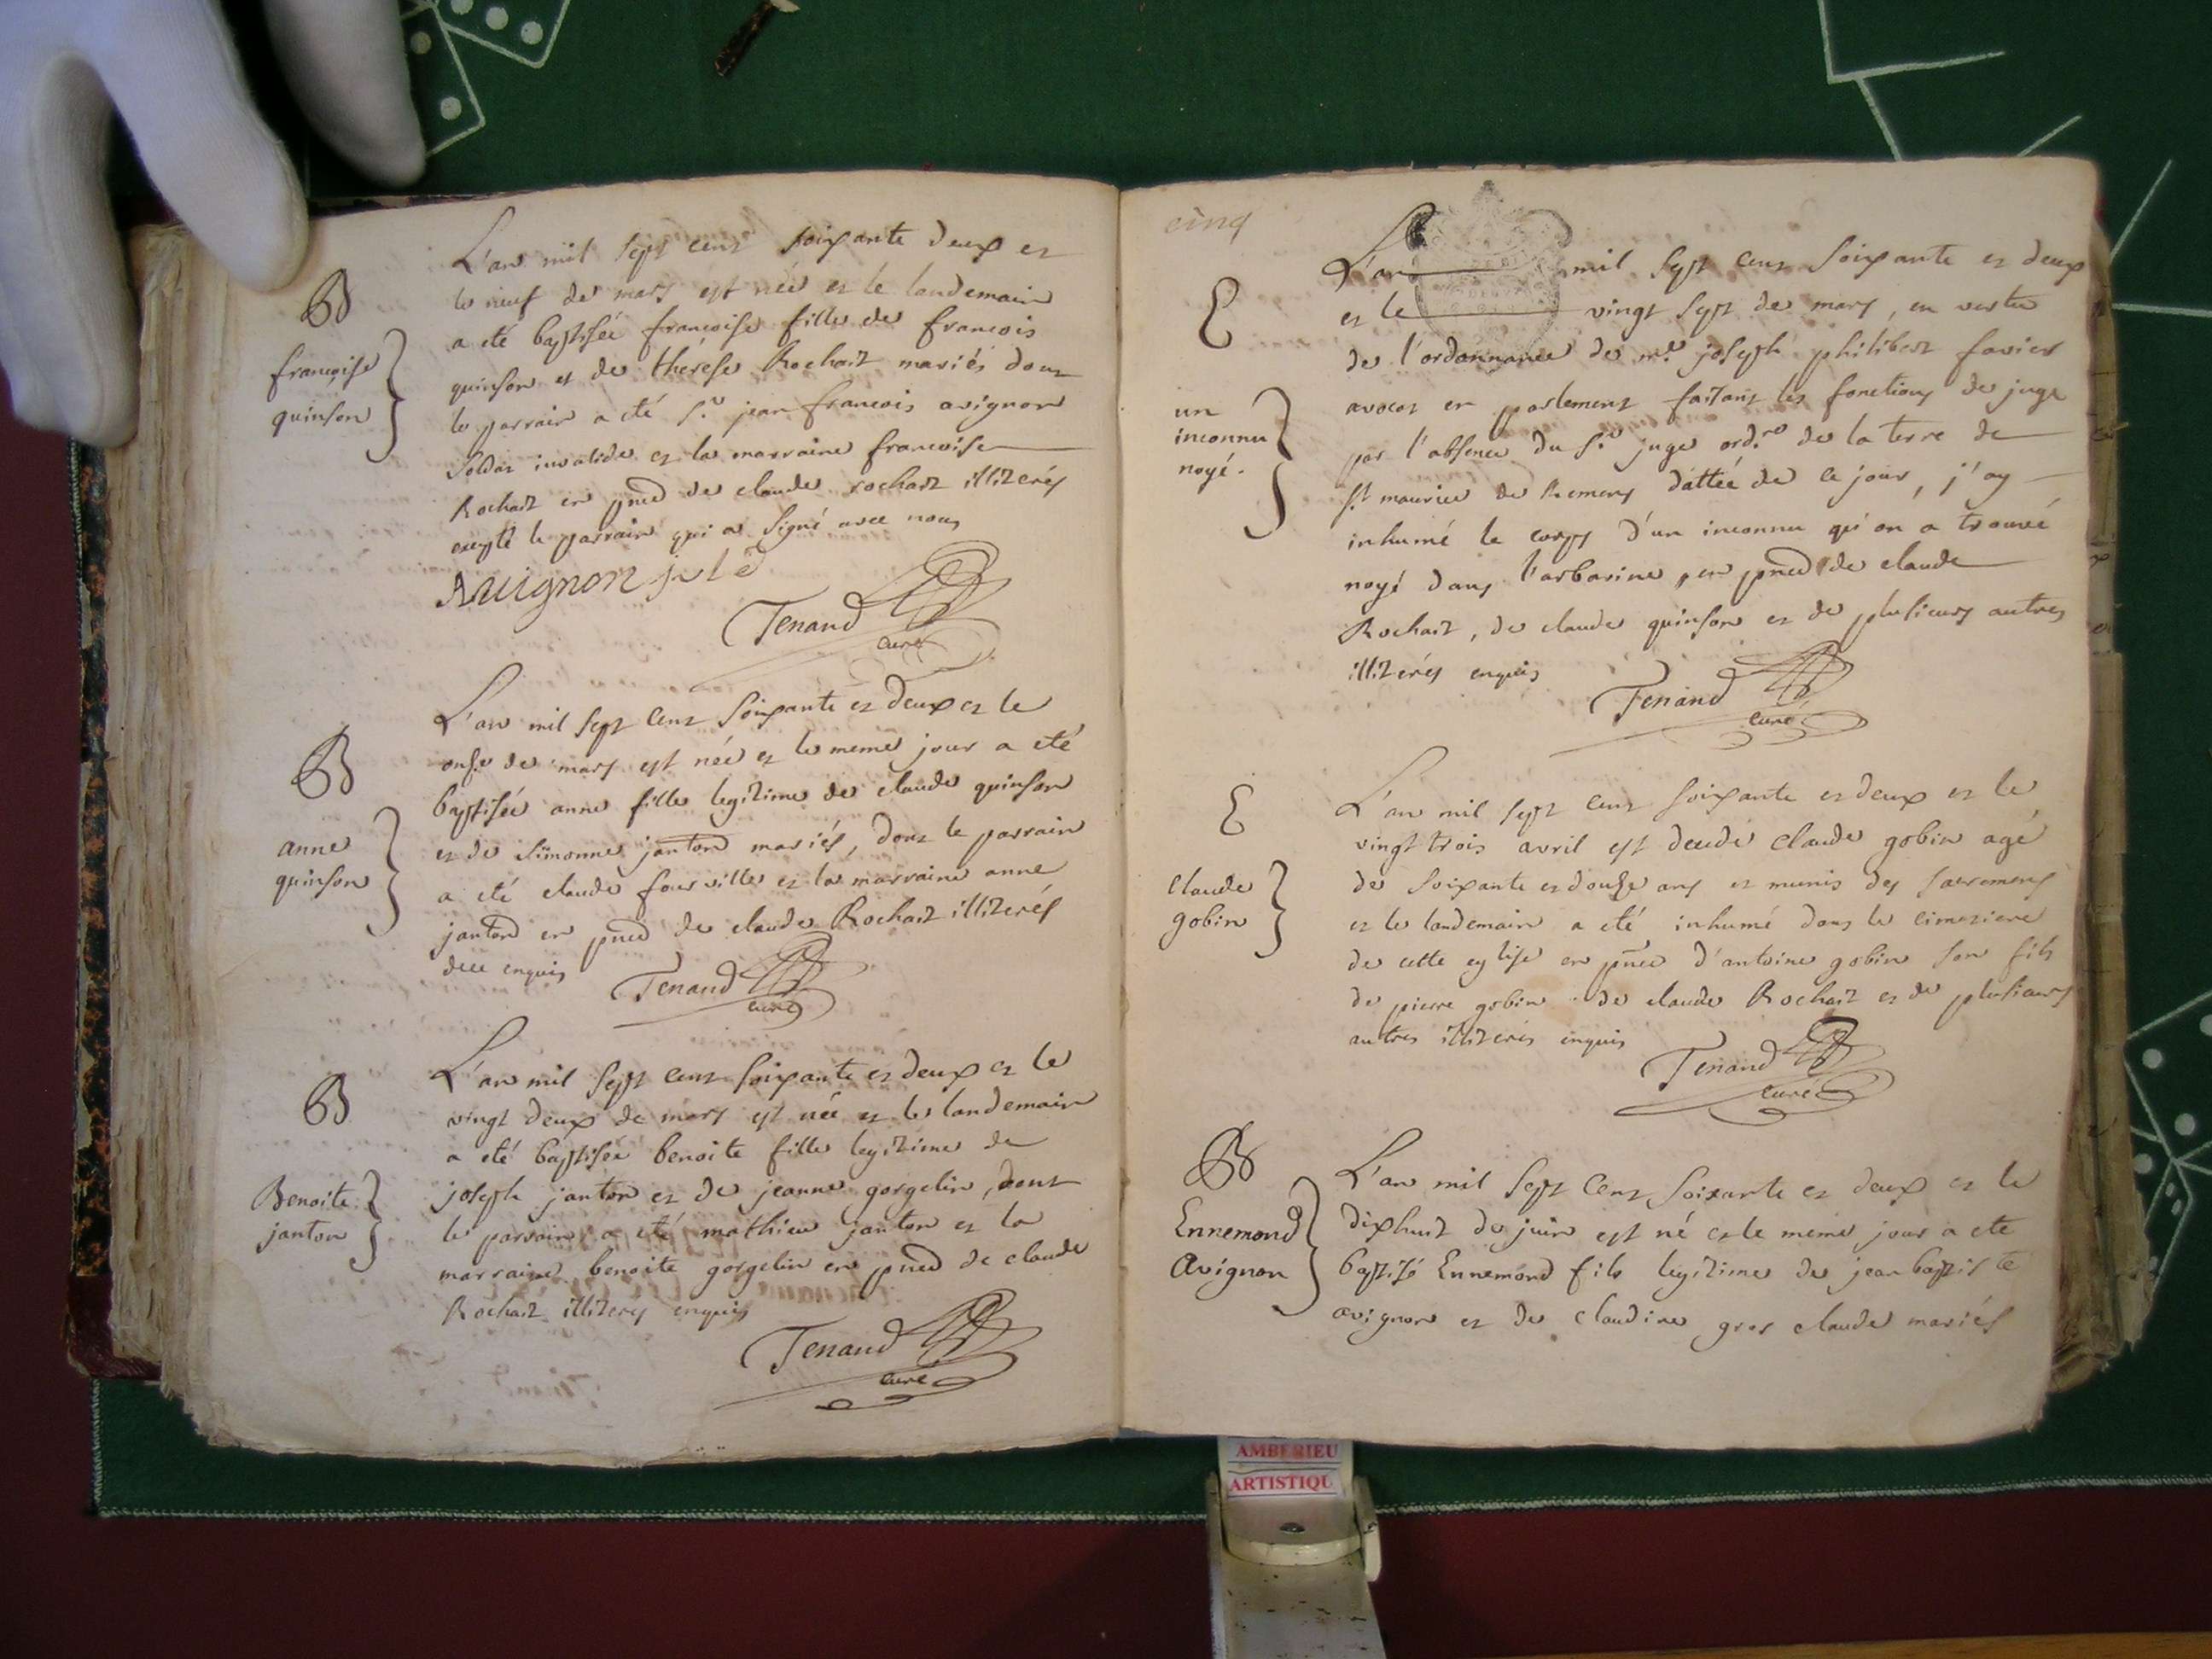 B
françoise
quinson
L'an mil sept cent soixante deux et
le neuf de mars est née et le landemain
a eté baptisée françoise fille de francois
quinson et de thérése Rochait mariés dont
le parrain a eté s.r jean francois avignon
soldat invalide et la marraine francoise
Rochait en pnce de claude rochait illiterés
exepté le parrain qui a signé avec nous
Avignon
Tenand
curé
B
anne
quinson
L'an mil sept cent soixante et deux et le
onse de mars est née et le meme jour a eté
baptisée anne fille legitime de claude quinson
et de simonne janton mariés, dont le parrain
a eté claude fourville et la marraine anne
janton en pnce de claude Rochait illiterés
enquis
Tenand
curé
B
Benoite
janton
L'an mil sept cent soixante et deux et le
vingt deux de mars est née et le landemain
a eté baptisée benoite fille legitime de
joseph janton et de jeanne gorgelin, dont
le parrain a eté mathieu janton et la
marraine benoite gorgelin en pnce de claude
Rochait illiteres enquis
Tenand
curé
cinq
E
un
inconnu
noyé.
L'an mil sept cent soixante et deux
et le vingt sept de mars, en vertu
de l'ordonnance de m.e joseph philibert favier
avocat en parlement faisant les fonctions de juge
par l'absence du s.r juge ord.re de la terre de
s.t maurice de Remens dattée de ce jour, j'ay
inhumé le corps d'un inconnu qu'on a trouvé
noyé dans l'arbarine, en pnce de claude
Rochait, de claude quinson et de plusieurs autres
illiterés enquis
Tenand
curé
E
claude
gobin
L'an mil sept cent soixante et deux et le
vingt trois avril est decedé claude gobin agé
de soixante et douze ans et munis des sacremens
et le landemain a eté inhumé dans le cimetiere
de cette eglise en pnce d'antoine gobin son fils
de pierre gobin de claude Rochait et de plusieurs
autres illiterés enquis
Tenand
curé
B
Ennemond
Avignon
L'an mil sept cent soixante et deux et le
dixhuit de juin est né et le meme jour a ete
baptisé Ennemond fils legitime de jean baptiste
avignon et de claudine gros claude mariés
AMBERIEU
ARTISTIQU